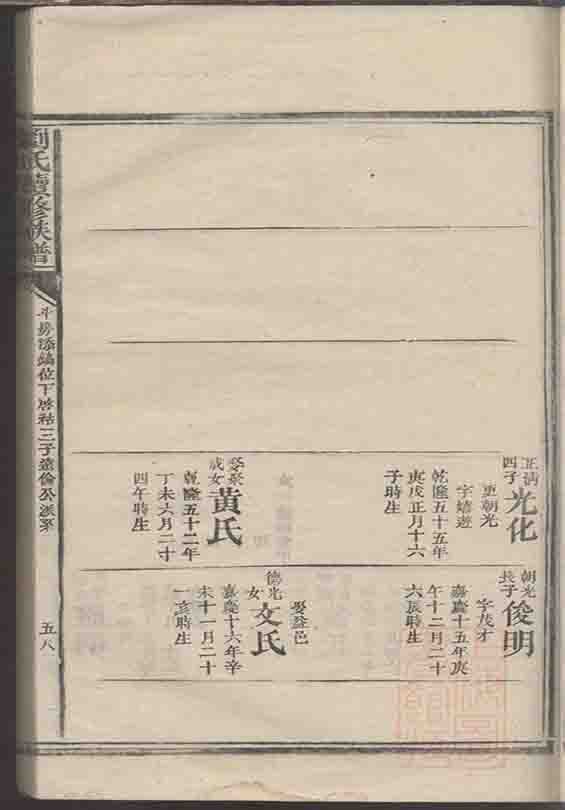 正満四子
光化
更朝光
字嬉遊
乾隆五十五年
庚戌正月十六
子時生
娶
成女
黃氏
乾隆五十二年
丁未六月二十
四午時生
朝光長子
俊明
字茂才
嘉慶十五年庚
午十二月二十
六辰時生
娶益邑
德光女
文氏
嘉慶十六年辛
未十一月二十
一亥時生
劉氏續修族譜
斗房添鎬位下啓三子遠倫公派系
五八